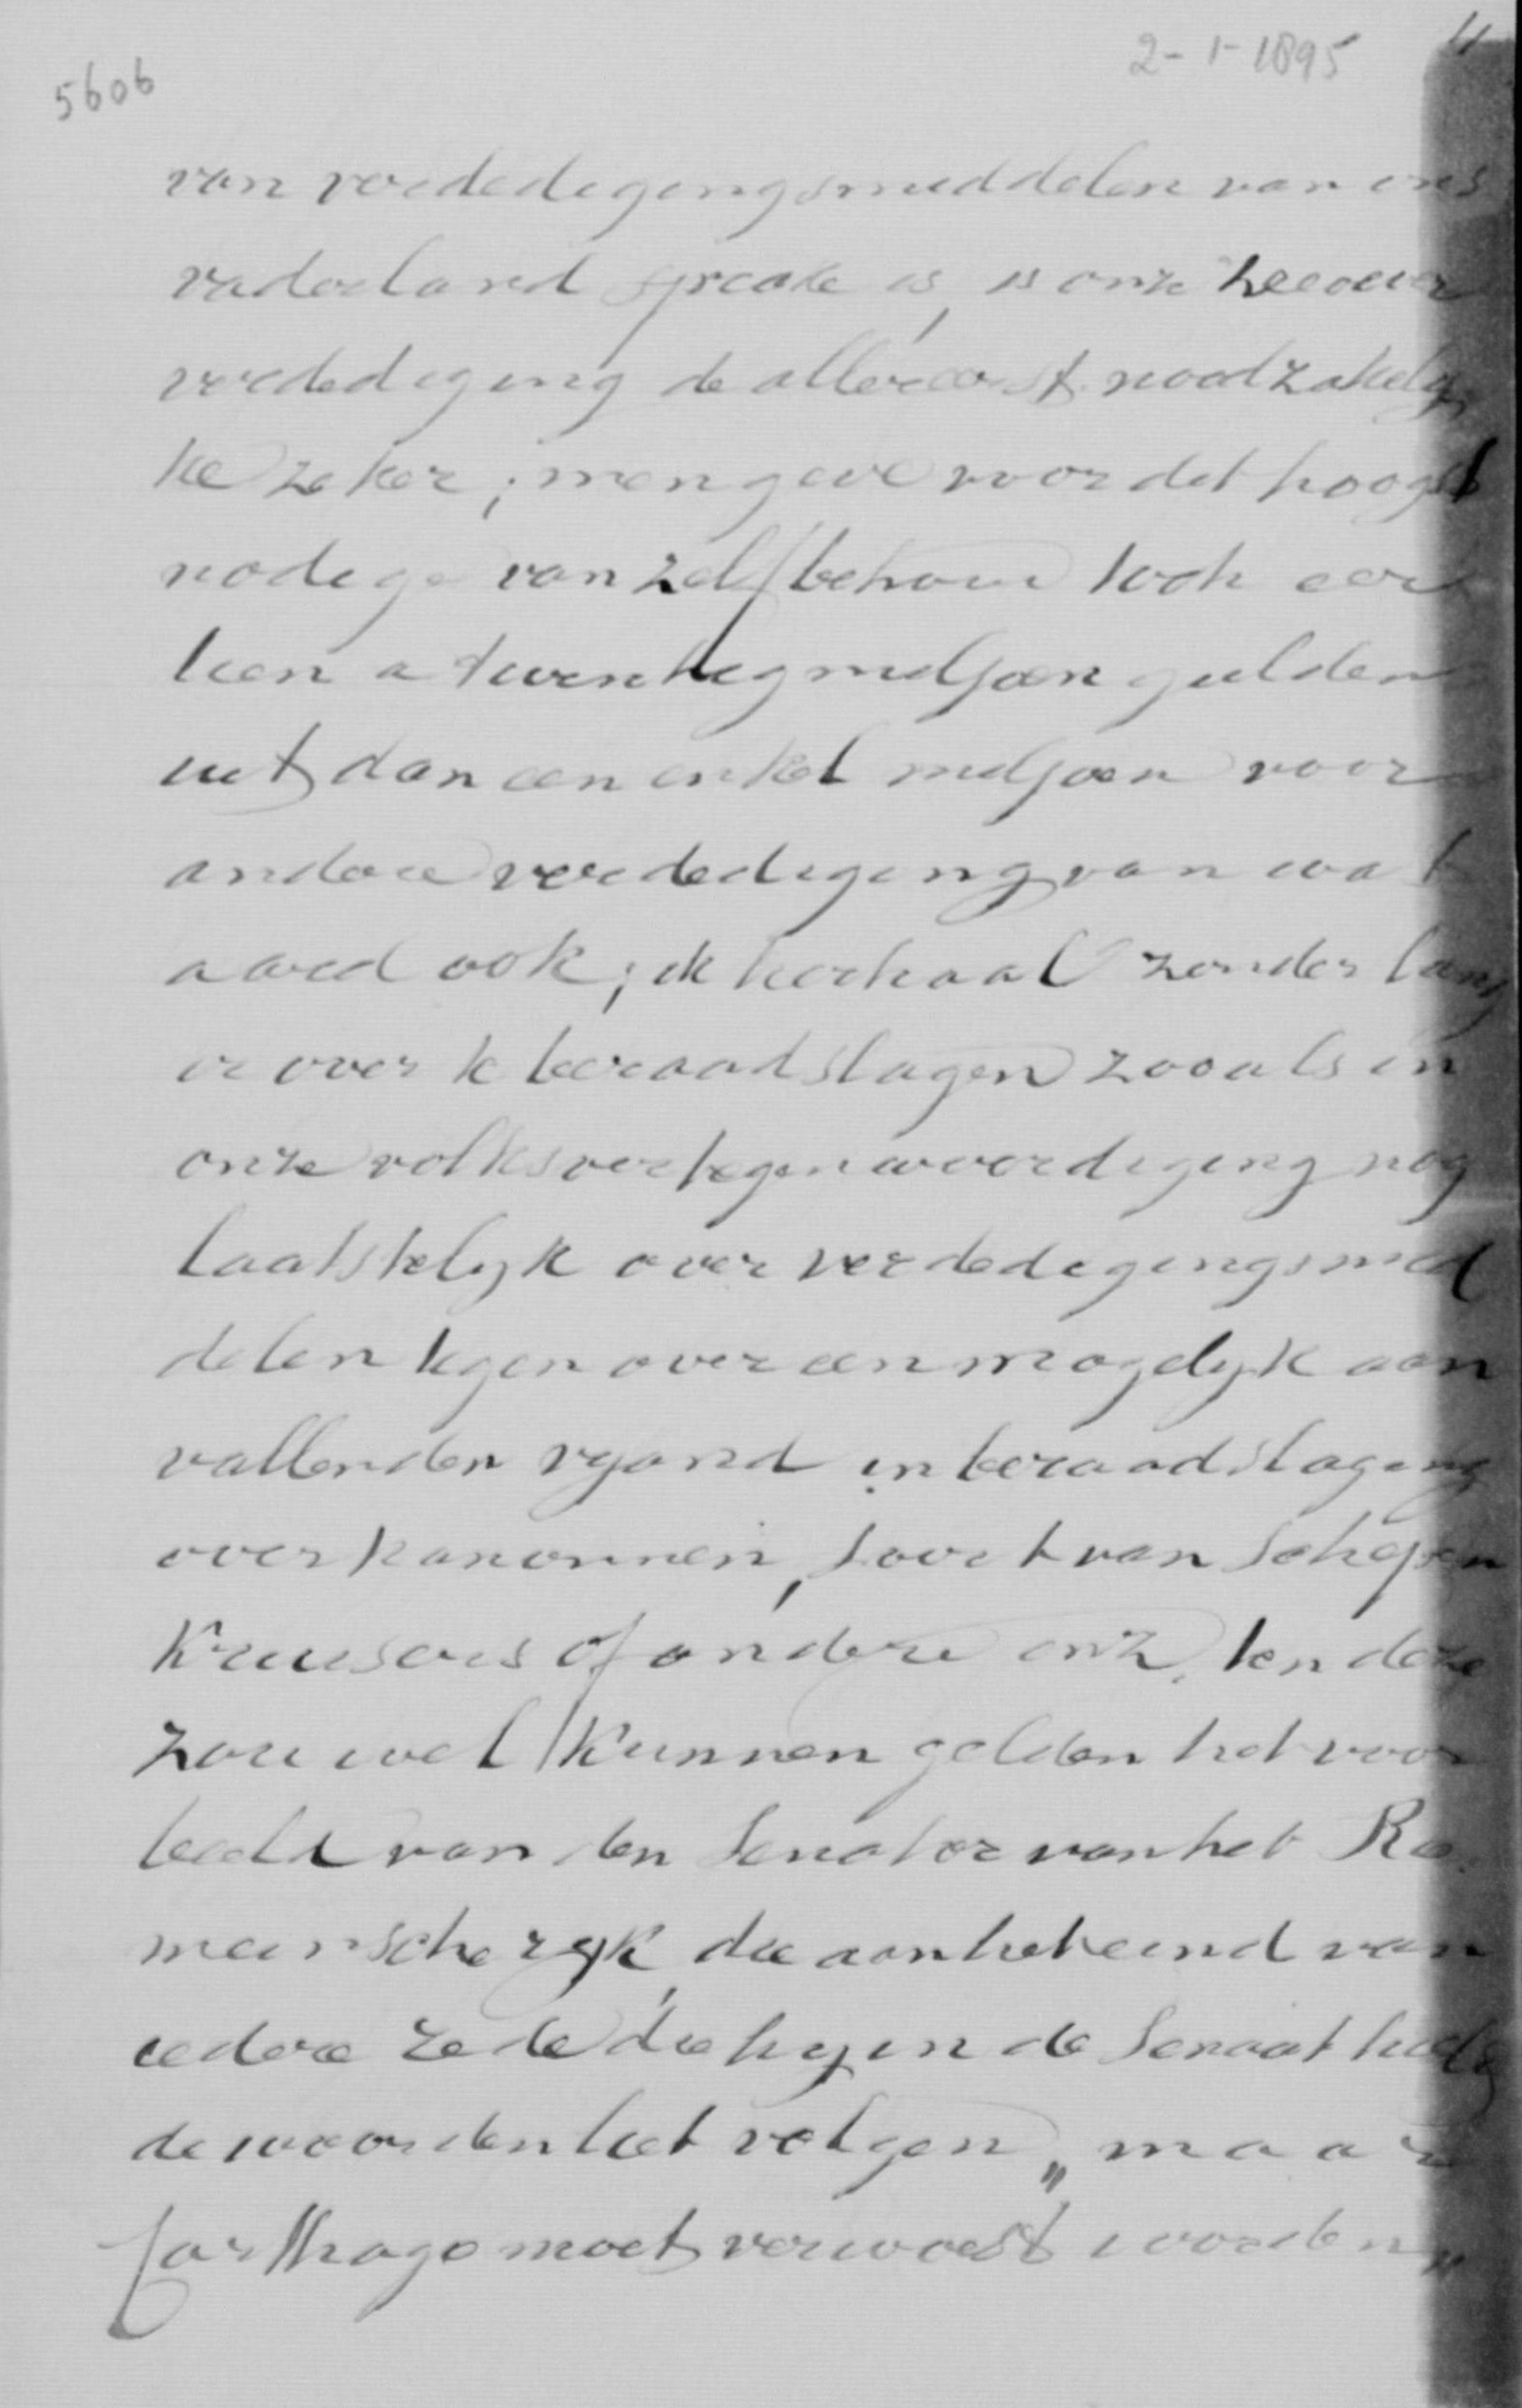 5606
2-1-1895
11
van verdedigingsmiddelen van ons
vaderland sprake is, is onze zeeoever
verdediging de allereerst noodzakelij
ke zeker; men geve voor dit hoogst
nodige van zelfbehoud toch eer
tien a twentig miljoen gulden
uit dan een enkel miljoen voor
andere verdediging van wat
aard ook; ik herhaal zonder lang
er over te beraadslagen zooals in
onze volksvertegenwoordiging nog
laatstelijk over verdedigingsmid
delen tegenover een mogelijk aan
vallenden vijand in beraadslaging
over kanonnen, soort van schepen
Kruisers of andere enz. ten deze
zou wel kunnen gelden het voor
beeld van den Senator van het Ro
meinsche rijk, die aan het eind van
iedere rede die hij in de Senaat hield
de woorden liet volgen „maar
Carthago moet verwoest worden„